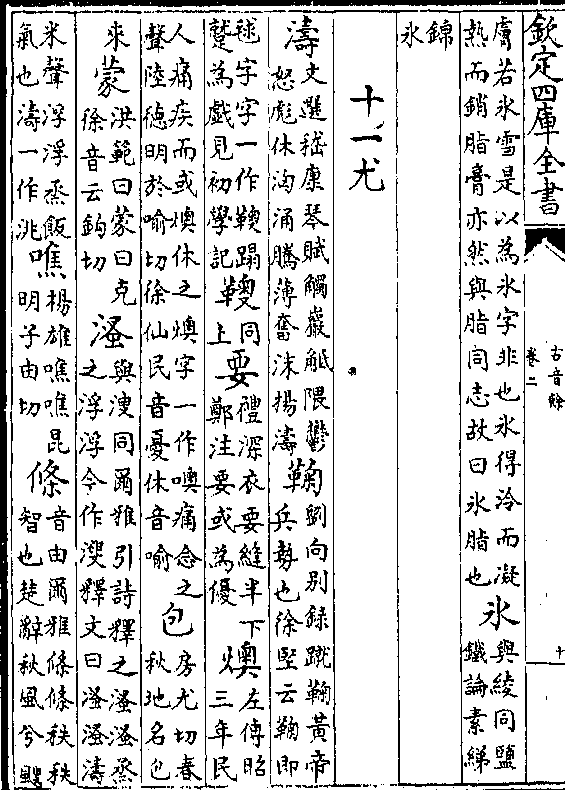 欽定四庫全書
古音餘
卷二
十
膚若氷雪是以為氷字非也氷得冷而凝
熱而銷脂膏亦然與脂同志故曰氷脂也
氷
與綾同鹽
鐵論素綈
錦
氷
十一尤
濤
文選嵇康琴賦觸巖觝隈鬱
怒彪休洶涌騰薄奮沫揚濤
鞠
劉向别録蹴鞠黃帝
兵勢也徐堅云鞠即
毬字字一作蹋
蹵為戲見初學記
同
上
要
禮深衣要縫半下
鄭注要或為優
燠
左傳昭
三年民
人痛疾而或燠休之燠字一作噢痛念之
聲陸德明於喻切徐仙民音憂休音喻
包
房尤切春
秋地名包
來
蒙
洪範曰蒙曰克
徐音云鉤切
溞
與溲同爾雅引詩釋之溞溞烝
之浮浮今作溲釋文曰溞溞濤
米聲浮浮烝飯
氣也濤一作洮
噍
楊雄噍噍昆
明子由切
條
音由爾雅條條秩秩
智也楚辭秋風兮颼